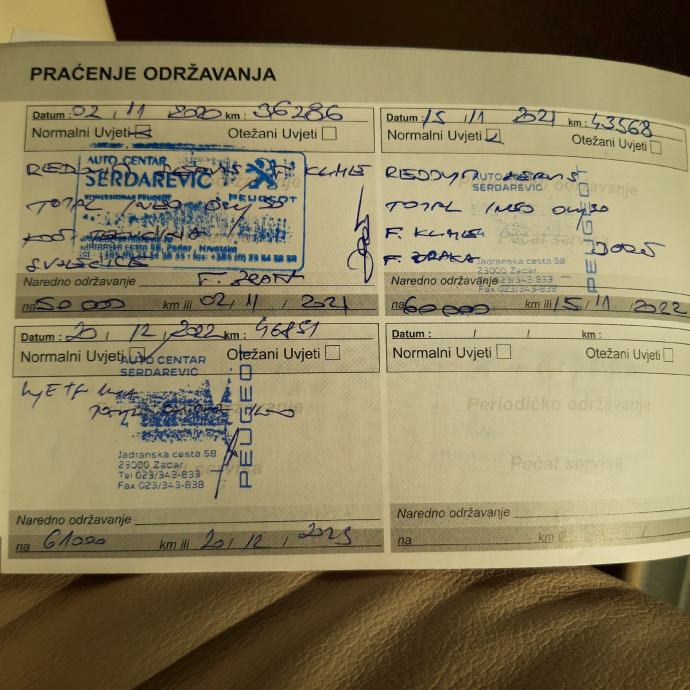 PRAĆENJE ODRŽAVANJA
Datum : 02 / 11 / 2020 km : 36286
Normalni Uvjeti Otežani Uvjeti
REDOVNI SERVIS F. KLIME
AUTO CENTAR
SERDAREVIĆ
KONCESIONAR PEUGEOT
PEUGEOT
TOTAL INEO
KOČ. TEKUĆINA
Jadranska cesta 58, Zadar, Hrvatska
SVJEĆICE F. ZRAKA
Naredno održavanje
na 50 000 km ili 02 / 11 / 2021
Datum : 15 / 11 2021 km : 43568
Normalni Uvjeti Otežani Uvjeti
REDOVNI SERVIS
AUTO CENTAR
SERDAREVIĆ
TOTAL INEO
F. KLIME
F. ZRAKA
Pečat servisa
Jadranska cesta 58
23000 Zadar
Fax 023/343-838
PEUGEOT
Naredno održavanje
na 60 000 km ili 15 / 11 / 2022
Datum : 20 / 12 / 2022 km : 46851
Normalni Uvjeti Otežani Uvjeti
AUTO CENTAR
SERDAREVIĆ
PEUGEOT
Jadranska cesta 58
23000 Zadar
Tel 023/343-833
Fax 023/343-838
Naredno održavanje
na 61000 km ili 20 / 12 / 2023
Datum : / / km :
Normalni Uvjeti Otežani Uvjeti
Periodičko održavanje
Pečat servisa
Naredno održavanje
na km ili / /